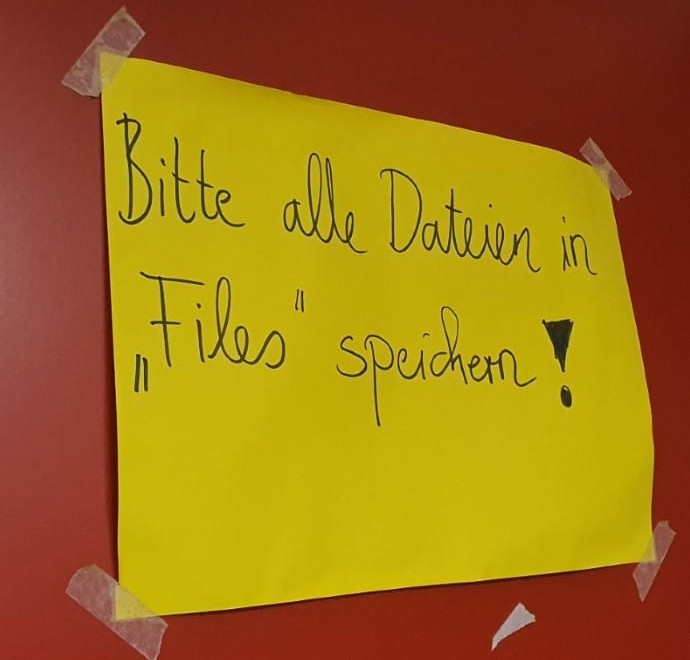 Bitte alle Dateien in
„Files" speichern!